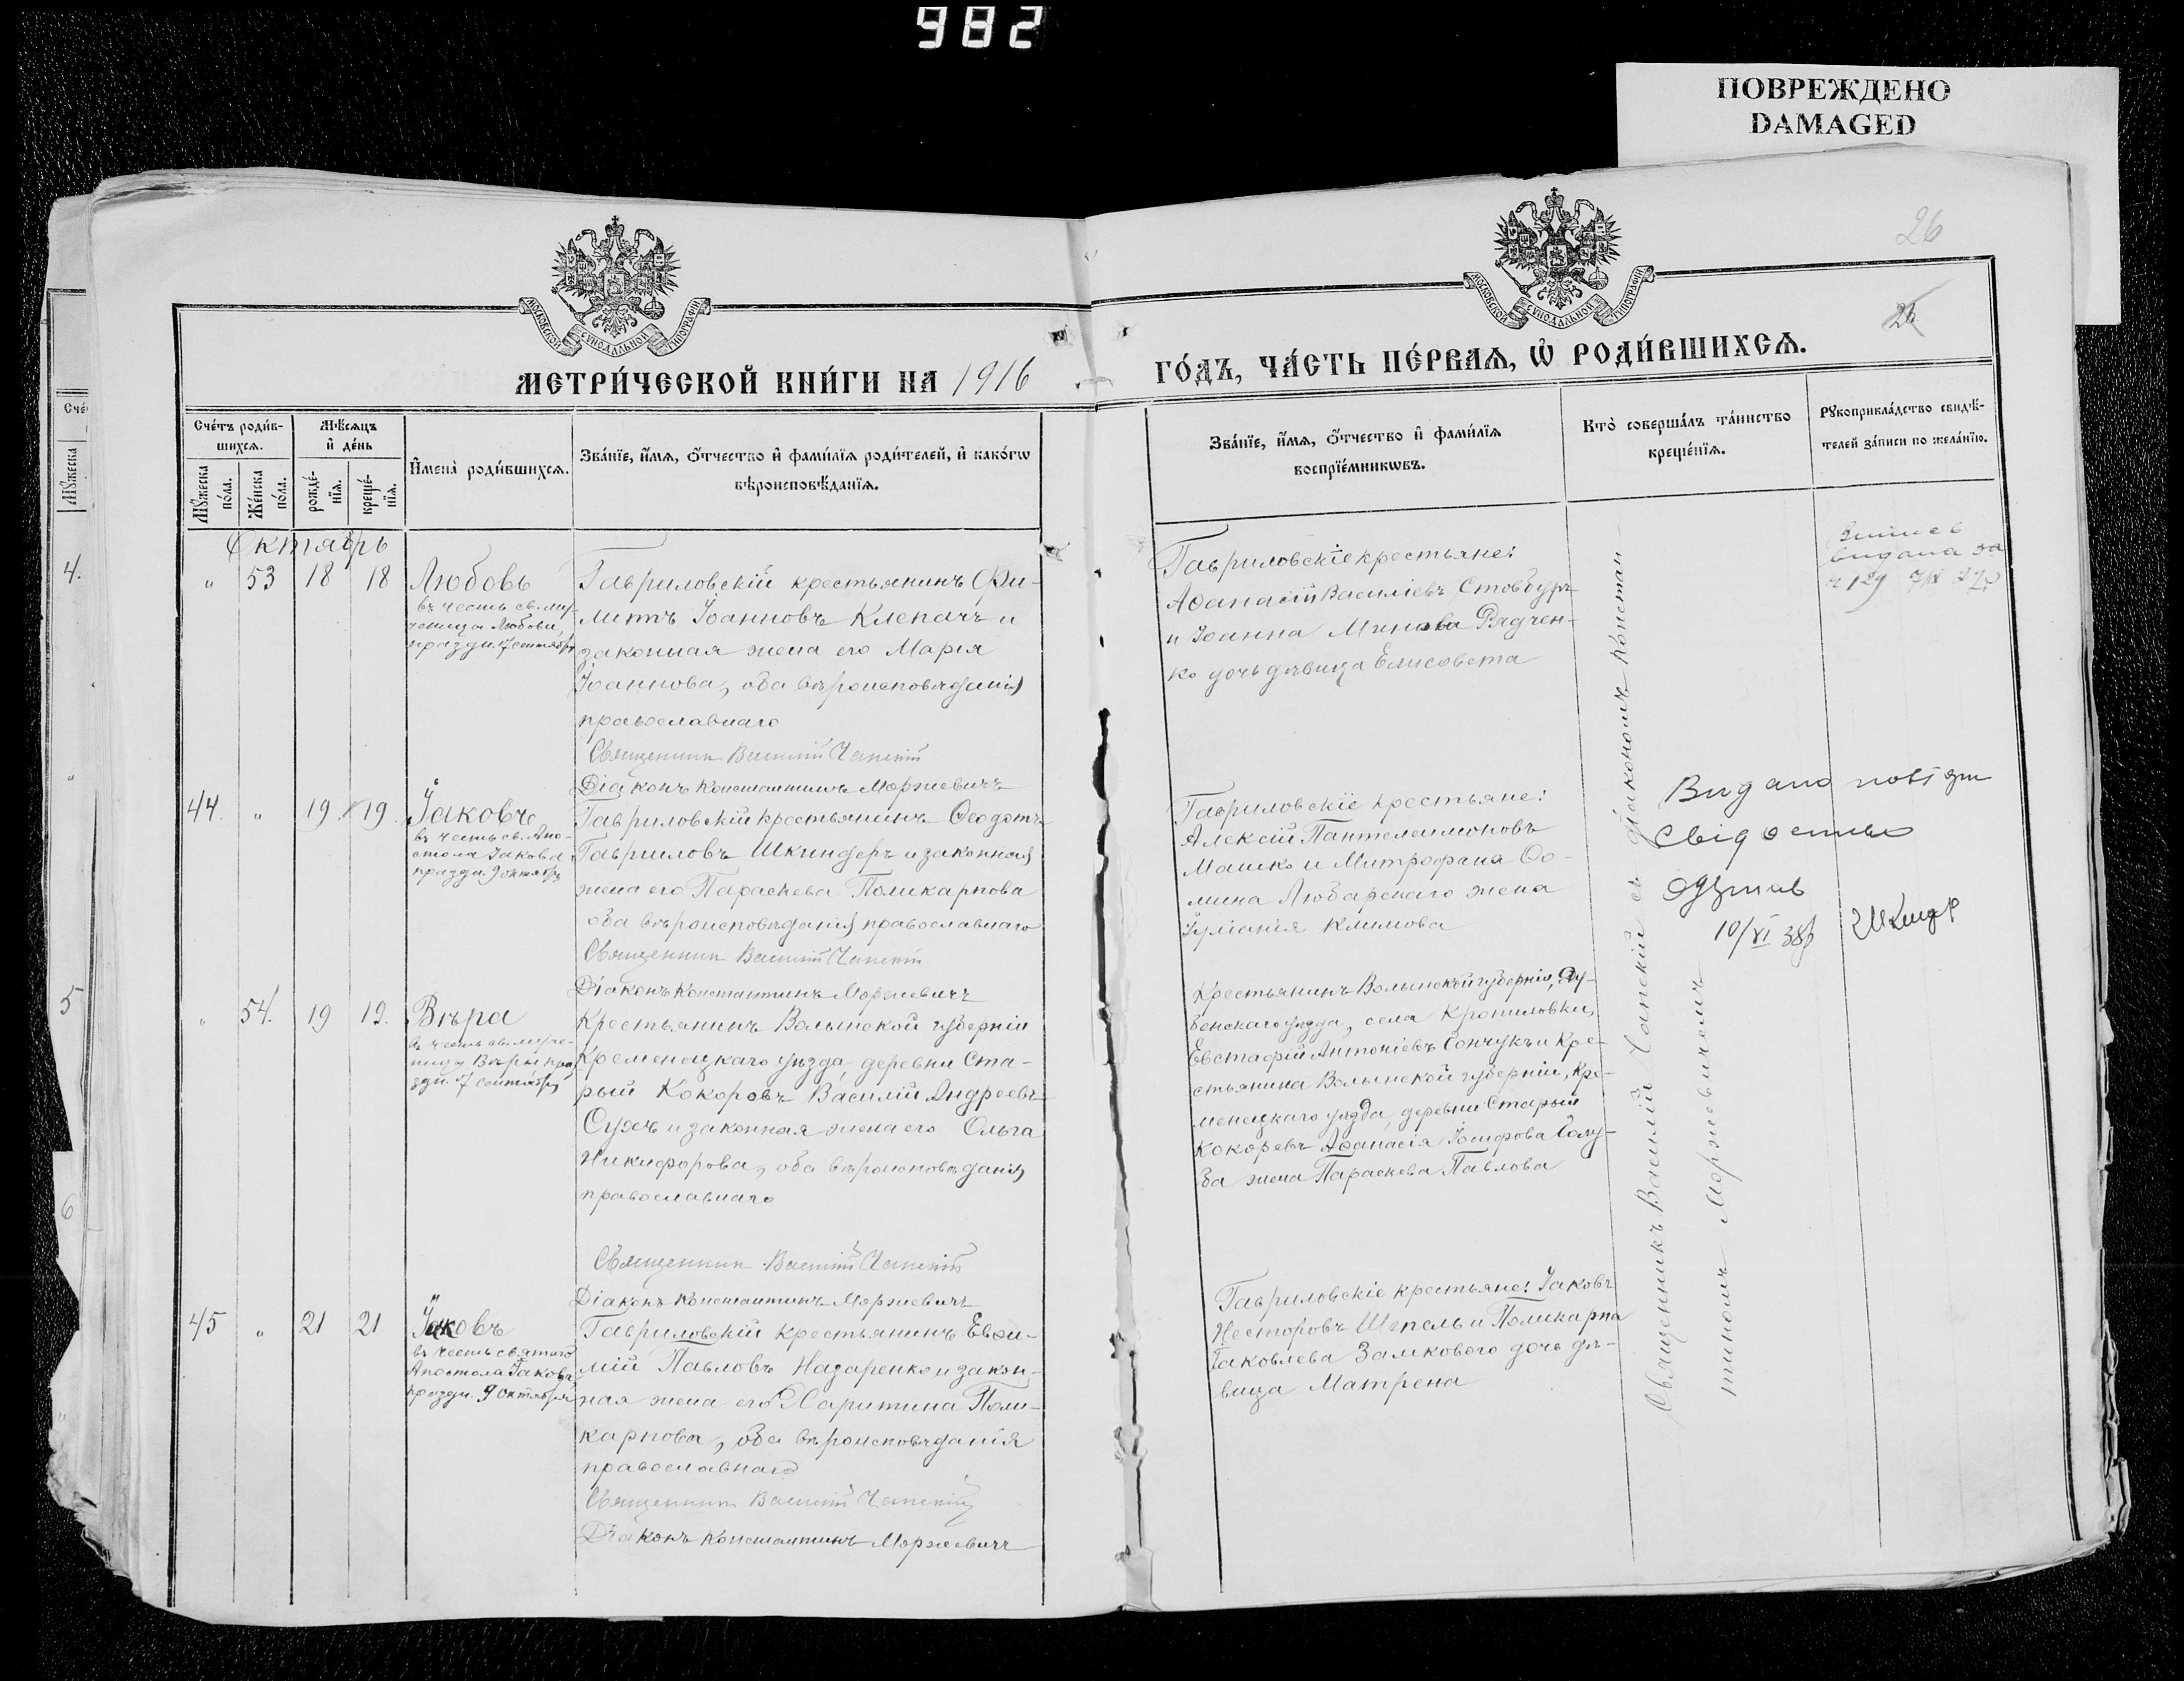 982
ПОВРЕЖДЕНО
DAMAGED
26
26
МОСКОВСКОЙ СѴНОДАЛЬНОЙ ТИПОГРАФІИ
МОСКОВСКОЙ СѴНОДАЛЬНОЙ ТИПОГРАФІИ
МЕТРИ́ЧЕСКОЙ КНИ́ГИ НА 1916
ГО́ДЪ, ЧА́СТЬ ПЕ́РВАѦ, Ѿ РОДИ́ВШИХСѦ.
Сче́тъ роди́в-
шихсѧ.
Мꙋ́жеска
по́ла.
Же́нска
по́ла.
Мѣ́сѧцъ
и҆ де́нь
рожде́-
нїѧ.
креще́-
нїѧ.
И҆мена̀ роди́вшихсѧ.
Зва́нїе, и҆́мѧ, ѻ҆́тчество и҆ фами́лїѧ роди́телей, и҆ како́гѡ
вѣроисповѣ́данїѧ.
Зва́нїе, и҆́мѧ, ѻ҆́тчество и҆ фами́лїѧ
воспрїе́мникѡвъ.
Кто̀ соверша́лъ та́инство
креще́нїѧ.
Рꙋкоприкла́дство свидѣ́-
телей за́писи по жела́нїю.
Октябрь
" 53 18 18 Любовь
въ честь св. му-
ченицы Любови,
праздн. 17 сентября
Гавриловскій крестьянинъ Фи-
липъ Іоанновъ Клепачъ и
законная жена его Марія
Іоаннова, оба вѣроисповѣданія
православнаго
Священникъ Василій Чапскій
Діаконъ Константинъ Моржевичъ
Гавриловскіе крестьяне:
Аѳанасій Василіевъ Стовбуръ
и Іоанна Минова Радчен-
ко дочь дѣвица Елисавета
44. " 19 19. Іаковъ
въ честь св. Апо-
стола Іакова
праздн. 9 октября
Гавриловскій крестьянинъ Ѳеодотъ
Гавриловъ Шкиндеръ и законная
жена его Параскева Поликарпова
оба вѣроисповѣданія православнаго
Священникъ Василій Чапскій
Діаконъ Константинъ Моржевичъ
Гавриловскіе крестьяне:
Алексій Пантелеимоновъ
Машко и Митрофана Ѳо-
мина Любарскаго жена
Іуліанія Климова
Видано
10/XI 38р
" 54. 19 19. Вѣра
въ честь св. муче-
ницы Вѣры пра-
здн. 17 сентября
Крестьянинъ Волынской губерніи
Кременецкаго уѣзда, деревни Ста-
рый Кокоровъ Василій Андреевъ
Сухъ и законная жена его Ольга
Никифорова, оба вѣроисповѣданія
православнаго
Священникъ Василій Чапскій
Діаконъ Константинъ Моржевичъ
Крестьянинъ Волынской губерніи, Ду-
бенскаго уѣзда, села Кропиловки,
Евстафій Антоніевъ Сончукъ и Кре-
стьянина Волынской губерніи, Кре-
менецкаго уѣзда деревни Старый
Кокоревъ Аѳанасія Іосифова Голу-
ба жена Параскева Павлова
45 " 21 21 Іаковъ
въ честь святаго
Апостола Іакова
праздн. 9 октября
Гавриловскій крестьянинъ Евѳи-
мій Павловъ Назаренко и закон-
ная жена его Харитина Поли-
карпова, оба вѣроисповѣданія
православнаго
Священникъ Василій Чапскій
Діаконъ Константинъ Моржевичъ
Гавриловскіе крестьяне: Іаковъ
Несторовъ Шпель и Поликарпа
Іаковлева Замкового дочь дѣ-
вица Матрена
Священникъ Василій Чапскій съ діакономъ Констан-
тиномъ Моржевичемъ